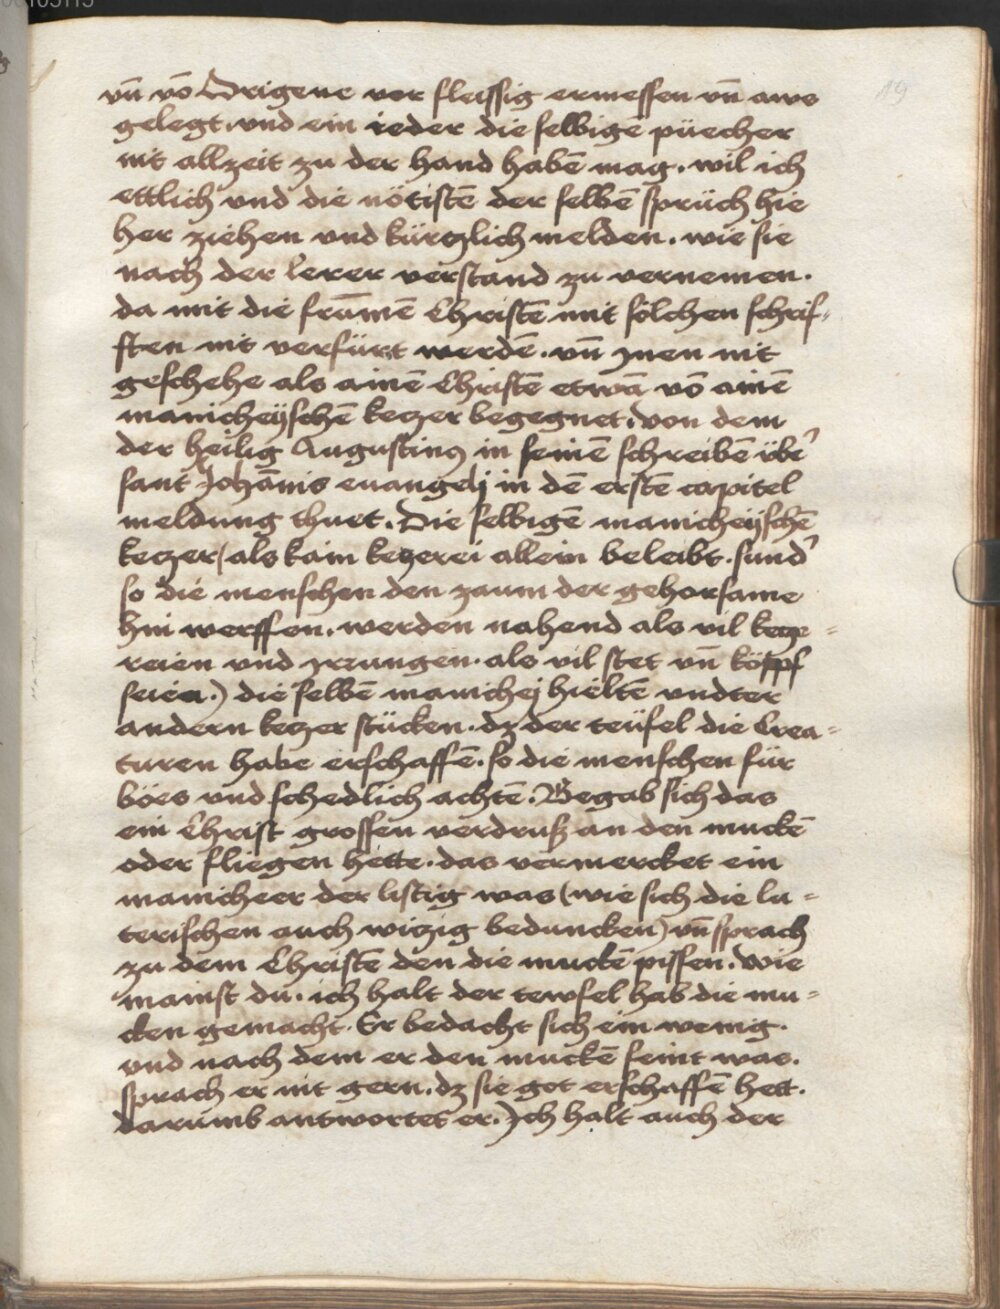 vn̄ vō Origene vor fleissig ermessen vn̄ aws
gelegt. vnd ein ieder die selbigē püecher
nit allzeit zu der hand habē mag. wil ich
ettlich vnd die nötistē der selbē sprüch hie
her ziehen vnd kürtzlich melden. wie sie
nach der lerer verstand zu vernemen.
da mit die frūmē Christē mit sölchen schrif-
ften nit verfürt werdē. vn̄ jnen nit
geschehe als ainē Christē etwā vō ainē
manicheyschē ketzer begegnet. von dem
der heilig Augustinꝰ in seinē schreibē übe͛
sant Johānis euangelj in dē erstē capitel
meldung thuet. Die selbigē manicheyschē
ketzer (als kain ketzerei allein beleibt. sund͛
so die menschen den zaum der gehorsame
hin werffen. werden nahend als vil ketze-
reien vnd jrrungen. als vil stet vn̄ köpff
seien.) die selbē manichej hieltē vndter
andern ketzer stücken. dz der teüfel die Crea-
turen habe erschaffē. so die menschen für
böes vnd schedlich achtē. Begab sich das
ein Christ grossen verdruß an den muckē
oder fliegen hette. das vermercket ein
manicheer der listig was (wie sich die lu-
terischen auch witzig beduncken) vn̄ sprach
zu dem Christē den die muckē pissen. wie
mainst du. ich halt der tewfel hab die mu-
cken gemacht. Er bedacht sich ein wenig.
vnd nach dem er den muckē feint was.
sprach er nit gern. dz sie got erschaffē hett.
darumb antwortet er. Ich halt auch der